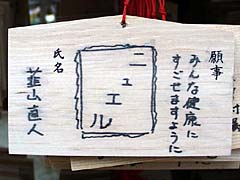 願事
みんな健康に
すごせますように
ニュエル
氏名
韮山直人